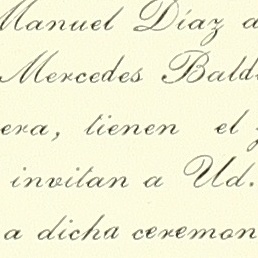 Manuel Díaz a
Mercedes Bald
era, tienen el
invitan a Ud.
a dicha ceremon